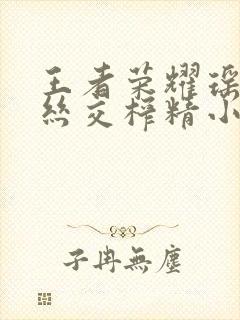 王者荣耀瑶
丝交榨精小
子冉無塵